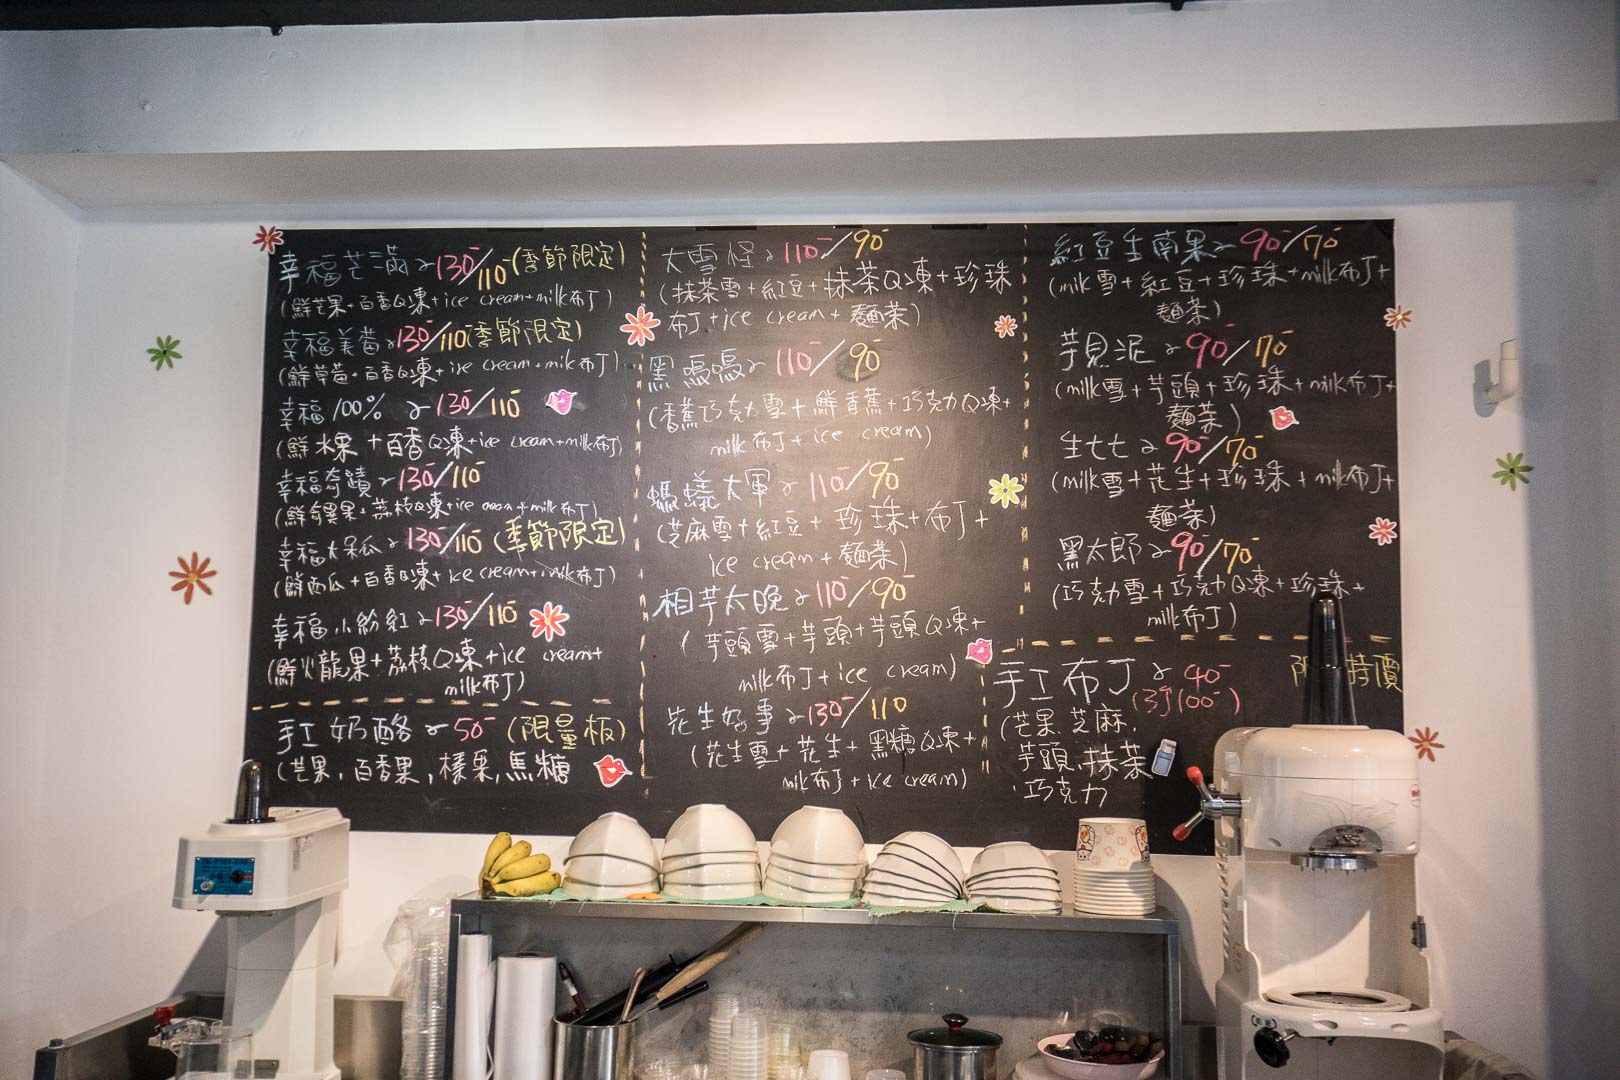 幸福芒滿~130-/110-(季節限定)
(鮮芒果+百香Q凍+ice cream+milk布丁)
幸福美莓~130-/110-(季節限定)
(鮮草莓+百香Q凍+ice cream+milk布丁)
幸福100% ~130-/110-
(鮮水果+百香Q凍+ice cream+milk布丁)
幸福奇蹟~130-/110-
(鮮奇異果+荔枝Q凍+ice cream+milk布丁)
幸福大呆瓜~130-/110-(季節限定)
(鮮西瓜+百香Q凍+ice cream+milk布丁)
幸福小紛紅~130-/110-
(鮮火龍果+荔枝Q凍+ice cream+
milk布丁)
手工奶酪~50-(限量板)
(芒果,百香果,榛果,焦糖
大雪怪~110-/90-
(抹茶雪+紅豆+抹茶Q凍+珍珠
布丁+ice cream+麵茶)
黑嗚嗚~110-/90-
(香蕉巧克力雪+鮮香蕉+巧克力Q凍+
milk布丁+ice cream)
螞蟻大軍~110-/90-
(芝麻雪+紅豆+珍珠+布丁+
ice cream+麵茶)
相芋太晚~110-/90-
(芋頭雪+芋頭+芋頭Q凍+
milk布丁+ice cream)
花生好事~130-/110
(花生雪+花生+黑糖Q凍+
milk布丁+ice cream)
紅豆生南果~90-/70-
(milk雪+紅豆+珍珠+milk布丁+
麵茶)
芋見泥~90-/70-
(milk雪+芋頭+珍珠+milk布丁+
麵茶)
生七七~90-/70-
(milk雪+花生+珍珠+milk布丁+
麵茶)
黑太郎~90-/70-
(巧克力雪+巧克力Q凍+珍珠+
milk布丁)
手工布丁~40-
特價
(3个100-)
(芒果.芝麻.
芋頭.抹茶
.巧克力